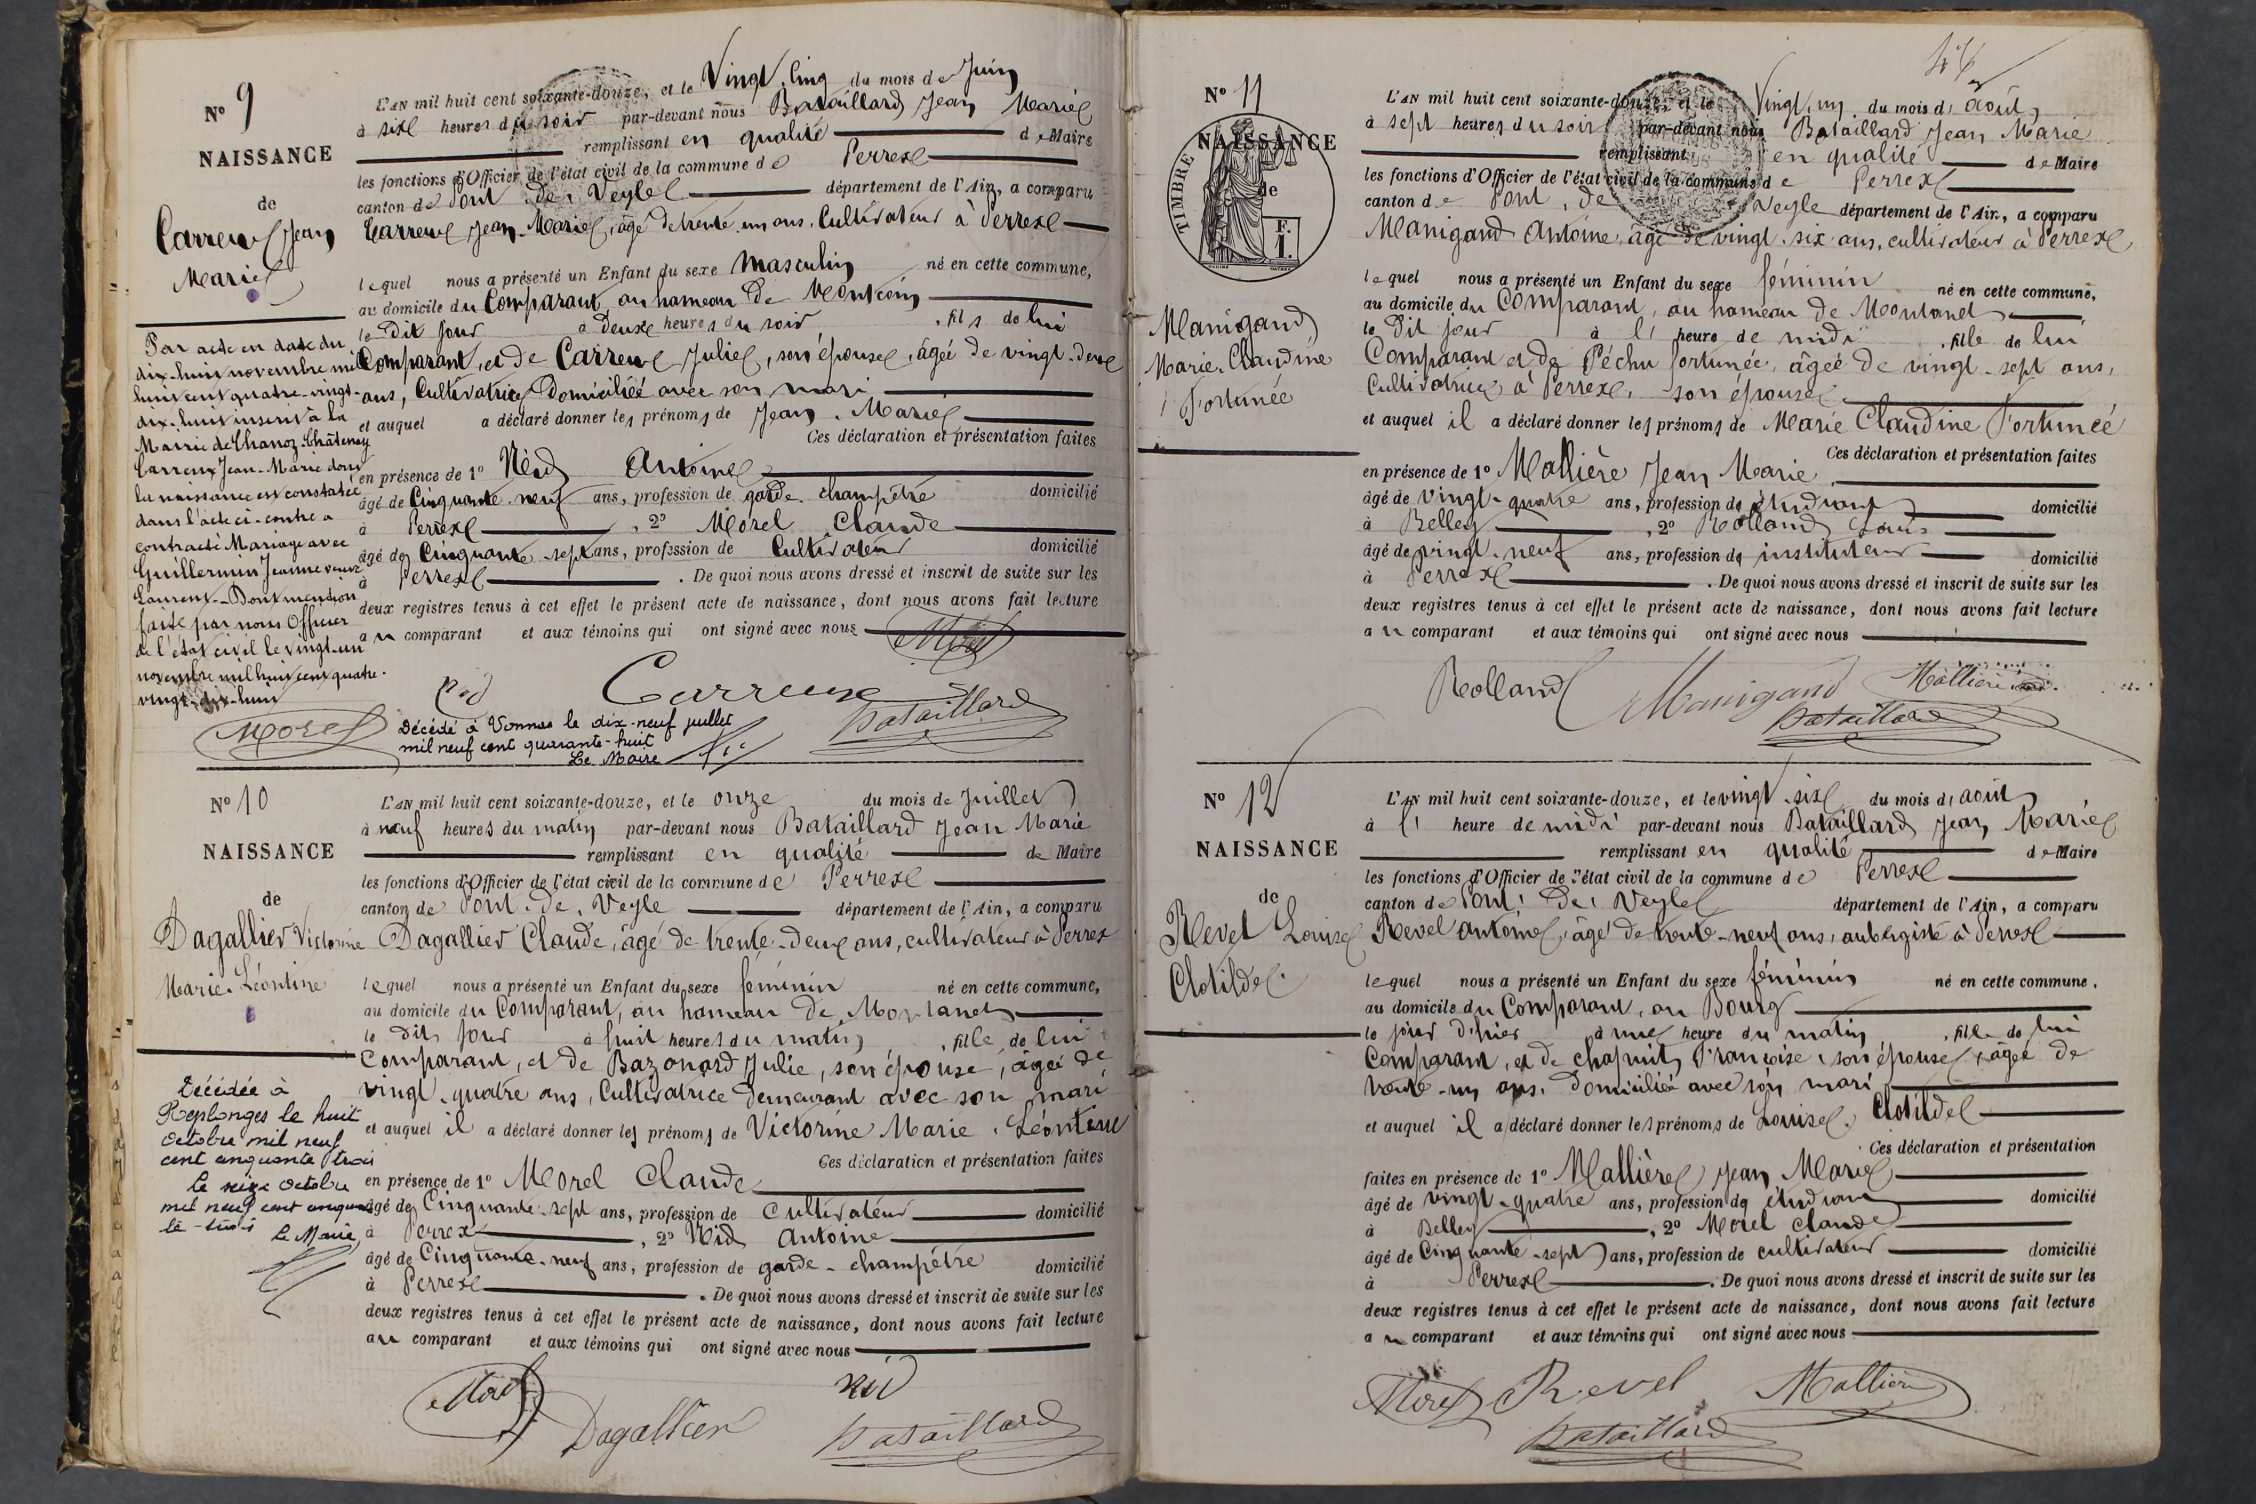 Nº 9
NAISSANCE
de
Carreux Jean
Marie
L'AN mil huit cent soixante-douze, et le Vingt cinq du mois de Juin
à six heures du soir par-devant nous Bataillard Jean Marie
remplissant en qualité de Maire
les fonctions d'Officier de l'état civil de la commune de Perrex
canton de Pont de Veyle département de l'Ain, a comparu
Carreux Jean-Marie, âgé de trente un ans, Cultivateur à Perrex
lequel nous a présenté un Enfant du sexe Masculin né en cette commune,
au domicile du Comparant au hameau de Montcoin
le dit jour à deux heures du soir, fils de lui
Comparant, et de Carreux Julie, son épouse, âgée de vingt-deux
ans, Cultivatrice Domiciliée avec son mari
et auquel a déclaré donner les prénoms de Jean Marie
Ces déclaration et présentation faites
en présence de 1º Néd Antoine
âgé de Cinquante-neuf ans, profession de garde champêtre domicilié
à Perrex, 2º Morel Claude
âgé de Cinquante-sept ans, profession de Cultivateur domicilié
à Perrex. De quoi nous avons dressé et inscrit de suite sur les
deux registres tenus à cet effet le présent acte de naissance, dont nous avons fait lecture
au comparant et aux témoins qui ont signé avec nous
Par acte en date du
dix-huit novembre mil
huit cent quatre-vingt-
dix-huit inscrit à la
Mairie de Chanoz-Châtenay
Carreux Jean-Marie dont
la naissance est constatée
dans l'acte ci-contre a
contracté Mariage avec
Guillermin Jeanne veuve
Laurent. Dont mention
faite par nous Officier
de l'état civil le vingt-un
novembre mil huit cent quatre-
vingt-dix-huit
Morel
Néd
Carreux
Morel
Bataillard
Décédé à Vonnas le dix-neuf juillet
mil neuf cent quarante-huit
Le Maire
Nº 10
NAISSANCE
de
Dagallier Victorine
Marie Léontine
L'AN mil huit cent soixante-douze, et le onze du mois de Juillet
à neuf heures du matin par-devant nous Bataillard Jean Marie
remplissant en qualité de Maire
les fonctions d'Officier de l'état civil de la commune de Perrex
canton de Pont de Veyle département de l'Ain, a comparu
Dagallier Claude, âgé de trente-deux ans, cultivateur à Perrex
lequel nous a présenté un Enfant du sexe féminin né en cette commune,
au domicile du Comparant, au hameau de Montanet
le dit jour à huit heures du matin, fille de lui
Comparant, et de Bazonard Julie, son épouse, âgée de
vingt-quatre ans, Cultivatrice demeurant avec son mari
et auquel il a déclaré donner les prénoms de Victorine Marie Léontine
Ces déclaration et présentation faites
en présence de 1º Morel Claude
âgé de Cinquante-sept ans, profession de Cultivateur domicilié
à Perrex, 2º Néd Antoine
âgé de Cinquante-neuf ans, profession de garde-champêtre domicilié
à Perrex. De quoi nous avons dressé et inscrit de suite sur les
deux registres tenus à cet effet le présent acte de naissance, dont nous avons fait lecture
au comparant et aux témoins qui ont signé avec nous
Décédée à
Replonges le huit
octobre mil neuf
cent cinquante trois
le seize octobre
mil neuf cent cinquan
te-trois
Le Maire
Morel
Néd
Dagallier
Bataillard
Nº 11
TIMBRE
F.
1.
NAISSANCE
de
Manigand
Marie Claudine
Fortunée
L'AN mil huit cent soixante-douze, et le Vingt un du mois d'août
à sept heures du soir par-devant nous Bataillard Jean Marie
remplissant en qualité de Maire
les fonctions d'Officier de l'état civil de la commune de Perrex
canton de Pont de Veyle département de l'Ain, a comparu
Manigand Antoine âgé de vingt-six ans, cultivateur à Perrex
lequel nous a présenté un Enfant du sexe féminin né en cette commune,
au domicile du Comparant, au hameau de Montanet
le dit jour à l' heure de midi, fille de lui
Comparant et de Péchu fortunée, âgée de vingt-sept ans,
Cultivatrice à Perrex, son épouse
et auquel il a déclaré donner les prénoms de Marie Claudine Fortunée
Ces déclaration et présentation faites
en présence de 1º Mallière Jean Marie
âgé de vingt-quatre ans, profession de étudiant domicilié
à Belley, 2º Rolland Louis
âgé de vingt-neuf ans, profession de instituteur domicilié
à Perrex. De quoi nous avons dressé et inscrit de suite sur les
deux registres tenus à cet effet le présent acte de naissance, dont nous avons fait lecture
au comparant et aux témoins qui ont signé avec nous
Rolland
Manigand
Mallière
Bataillard
Nº 12
NAISSANCE
de
Revel Louise
Clotilde
L'AN mil huit cent soixante-douze, et le vingt-six du mois d'août
à l' heure de midi par-devant nous Bataillard Jean Marie
remplissant en qualité de Maire
les fonctions d'Officier de l'état civil de la commune de Perrex
canton de Pont de Veyle département de l'Ain, a comparu
Revel Antoine, âgé de trente-neuf ans, aubergiste à Perrex
lequel nous a présenté un Enfant du sexe féminin né en cette commune.
au domicile du Comparant, au Bourg
le jour d'hier à une heure du matin, fille de lui
Comparant, et de Chapuit Françoise, son épouse, âgée de
trente-un ans, domiciliée avec son mari
et auquel il a déclaré donner les prénoms de Louise Clotilde
Ces déclaration et présentation
faites en présence de 1º Mallière Jean Marie
âgé de vingt-quatre ans, profession de étudiant domicilié
à Belley, 2º Morel Claude
âgé de Cinquante-sept ans, profession de cultivateur domicilié
à Perrex. De quoi nous avons dressé et inscrit de suite sur les
deux registres tenus à cet effet le présent acte de naissance, dont nous avons fait lecture
au comparant et aux témoins qui ont signé avec nous
Morel
Revel
Mallière
Bataillard